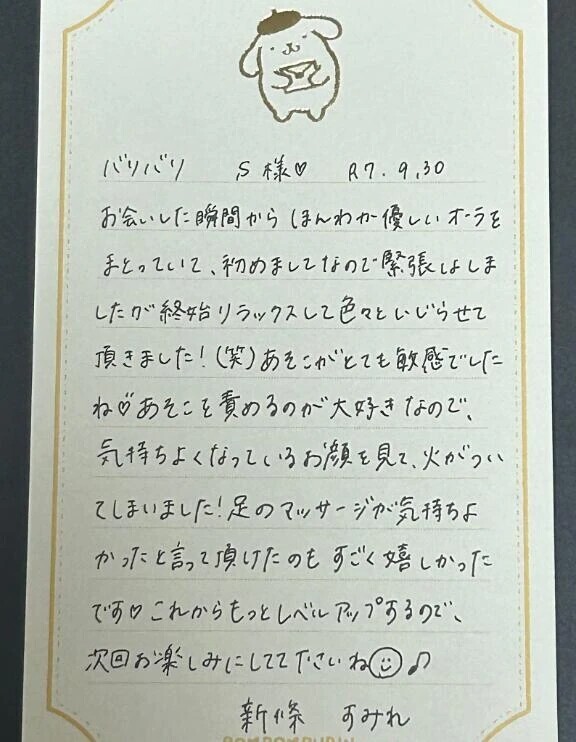 バリバリ S様♡ R7.9.30
お会いした瞬間から ほんわか優しいオーラを
まとっていて、初めましてなので緊張はしま
したが終始リラックスして色々といじらせて
頂きました!(笑)あそこがとても敏感でした
ね♡あそこを責めるのが大好きなので、
気持ちよくなっているお顔を見て、火がつい
てしまいました!足のマッサージが気持ちよ
かったと言って頂けたのも すごく嬉しかった
です♡これからもっとレベルアップするので、
次回お楽しみにしてて下さいね☺♫
新條 すみれ
POMPOMPURIN